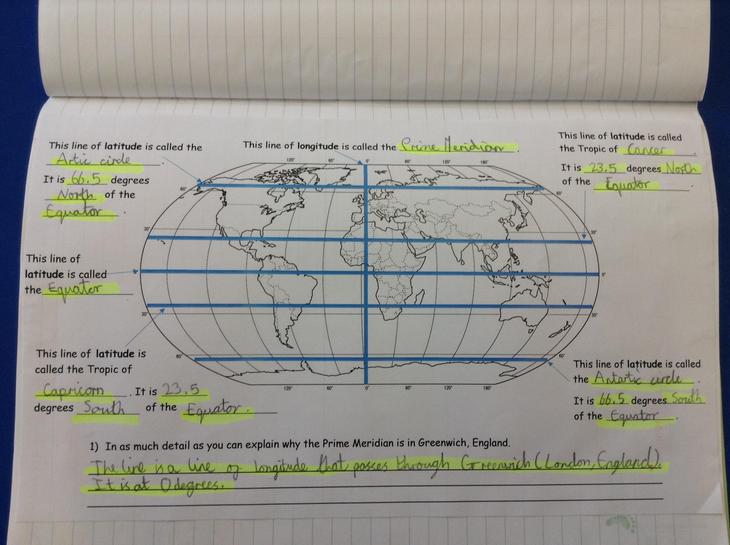 This line of latitude is called the
Artic circle.
It is 66.5 degrees
North of the
Equator.
This line of longitude is called the Prime Meridian.
This line of latitude is called
the Tropic of Cancer
It is 23.5 degrees North
of the Equator.
This line of
latitude is called
the Equator
This line of latitude is
called the Tropic of
Capricorn. It is 23.5
degrees South of the Equator.
This line of latitude is called
the Antartic circle.
It is 66.5 degrees South
of the Equator.
120° 60° 0° 60° 120° 180°
60° 60°
30° 30°
0° 0°
30° 30°
60° 60°
120° 60° 0° 60° 120° 180°
1) In as much detail as you can explain why the Prime Meridian is in Greenwich, England.
The line is a line of longitude that passes through Greenwich (London, England).
It is at 0 degrees.